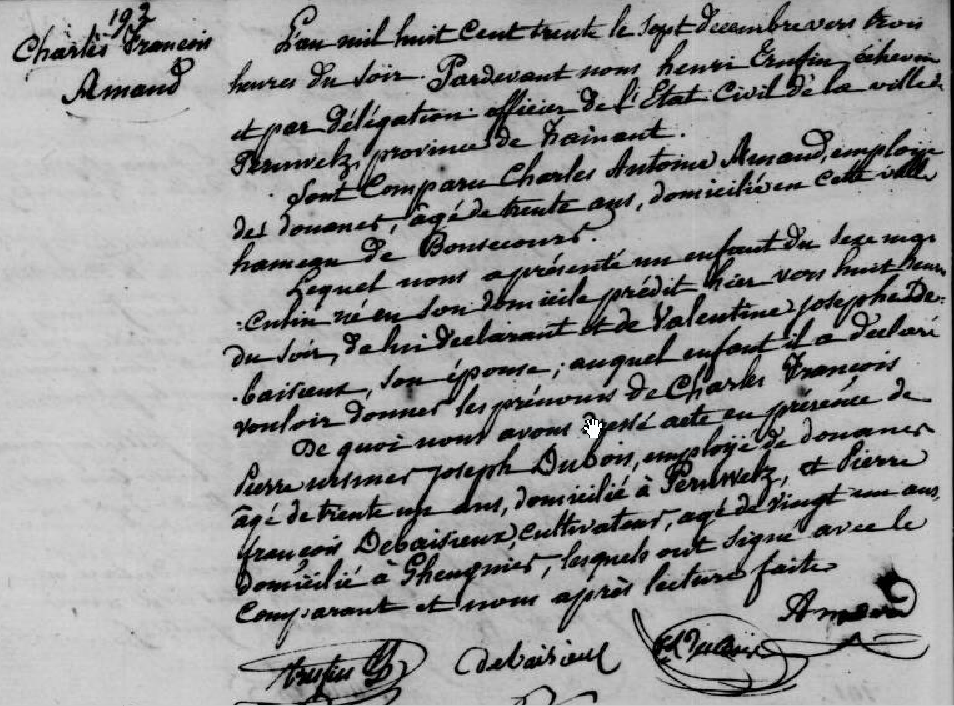 193
Charles François
Amand
L'an mil huit cent trente le sept decembre vers trois
heures du soir. Pardevant nous henri Trufin, échevin
et par délégation officier de l'Etat Civil de la ville de
Peruwelz, province de hainaut.
Sont Comparu Charles Antoine Amand, employé
des douanes, âgé de trente ans, domicilié en cette ville
hameau de Bonsecours.
Lequel nous a présenté un enfant du sexe mas-
-culin né en son domicile prédit hier vers huit heures
du soir, de lui declarant et de Valentine josephe De-
-baisieux, son épouse; auquel enfant il a declaré
vouloir donner les prénoms de Charles François
De quoi nous avons dressé acte en présence de
Pierre ursmer joseph Dubois, employé de douanes
âgé de trente un ans, domicilié à Peruwelz, et Pierre
françois Debaisieux, cultivateur, agé de vingt un ans,
domicilié à, lesquels ont signé avec le
Comparant et nous après lecture faite
Amand
debaisieux